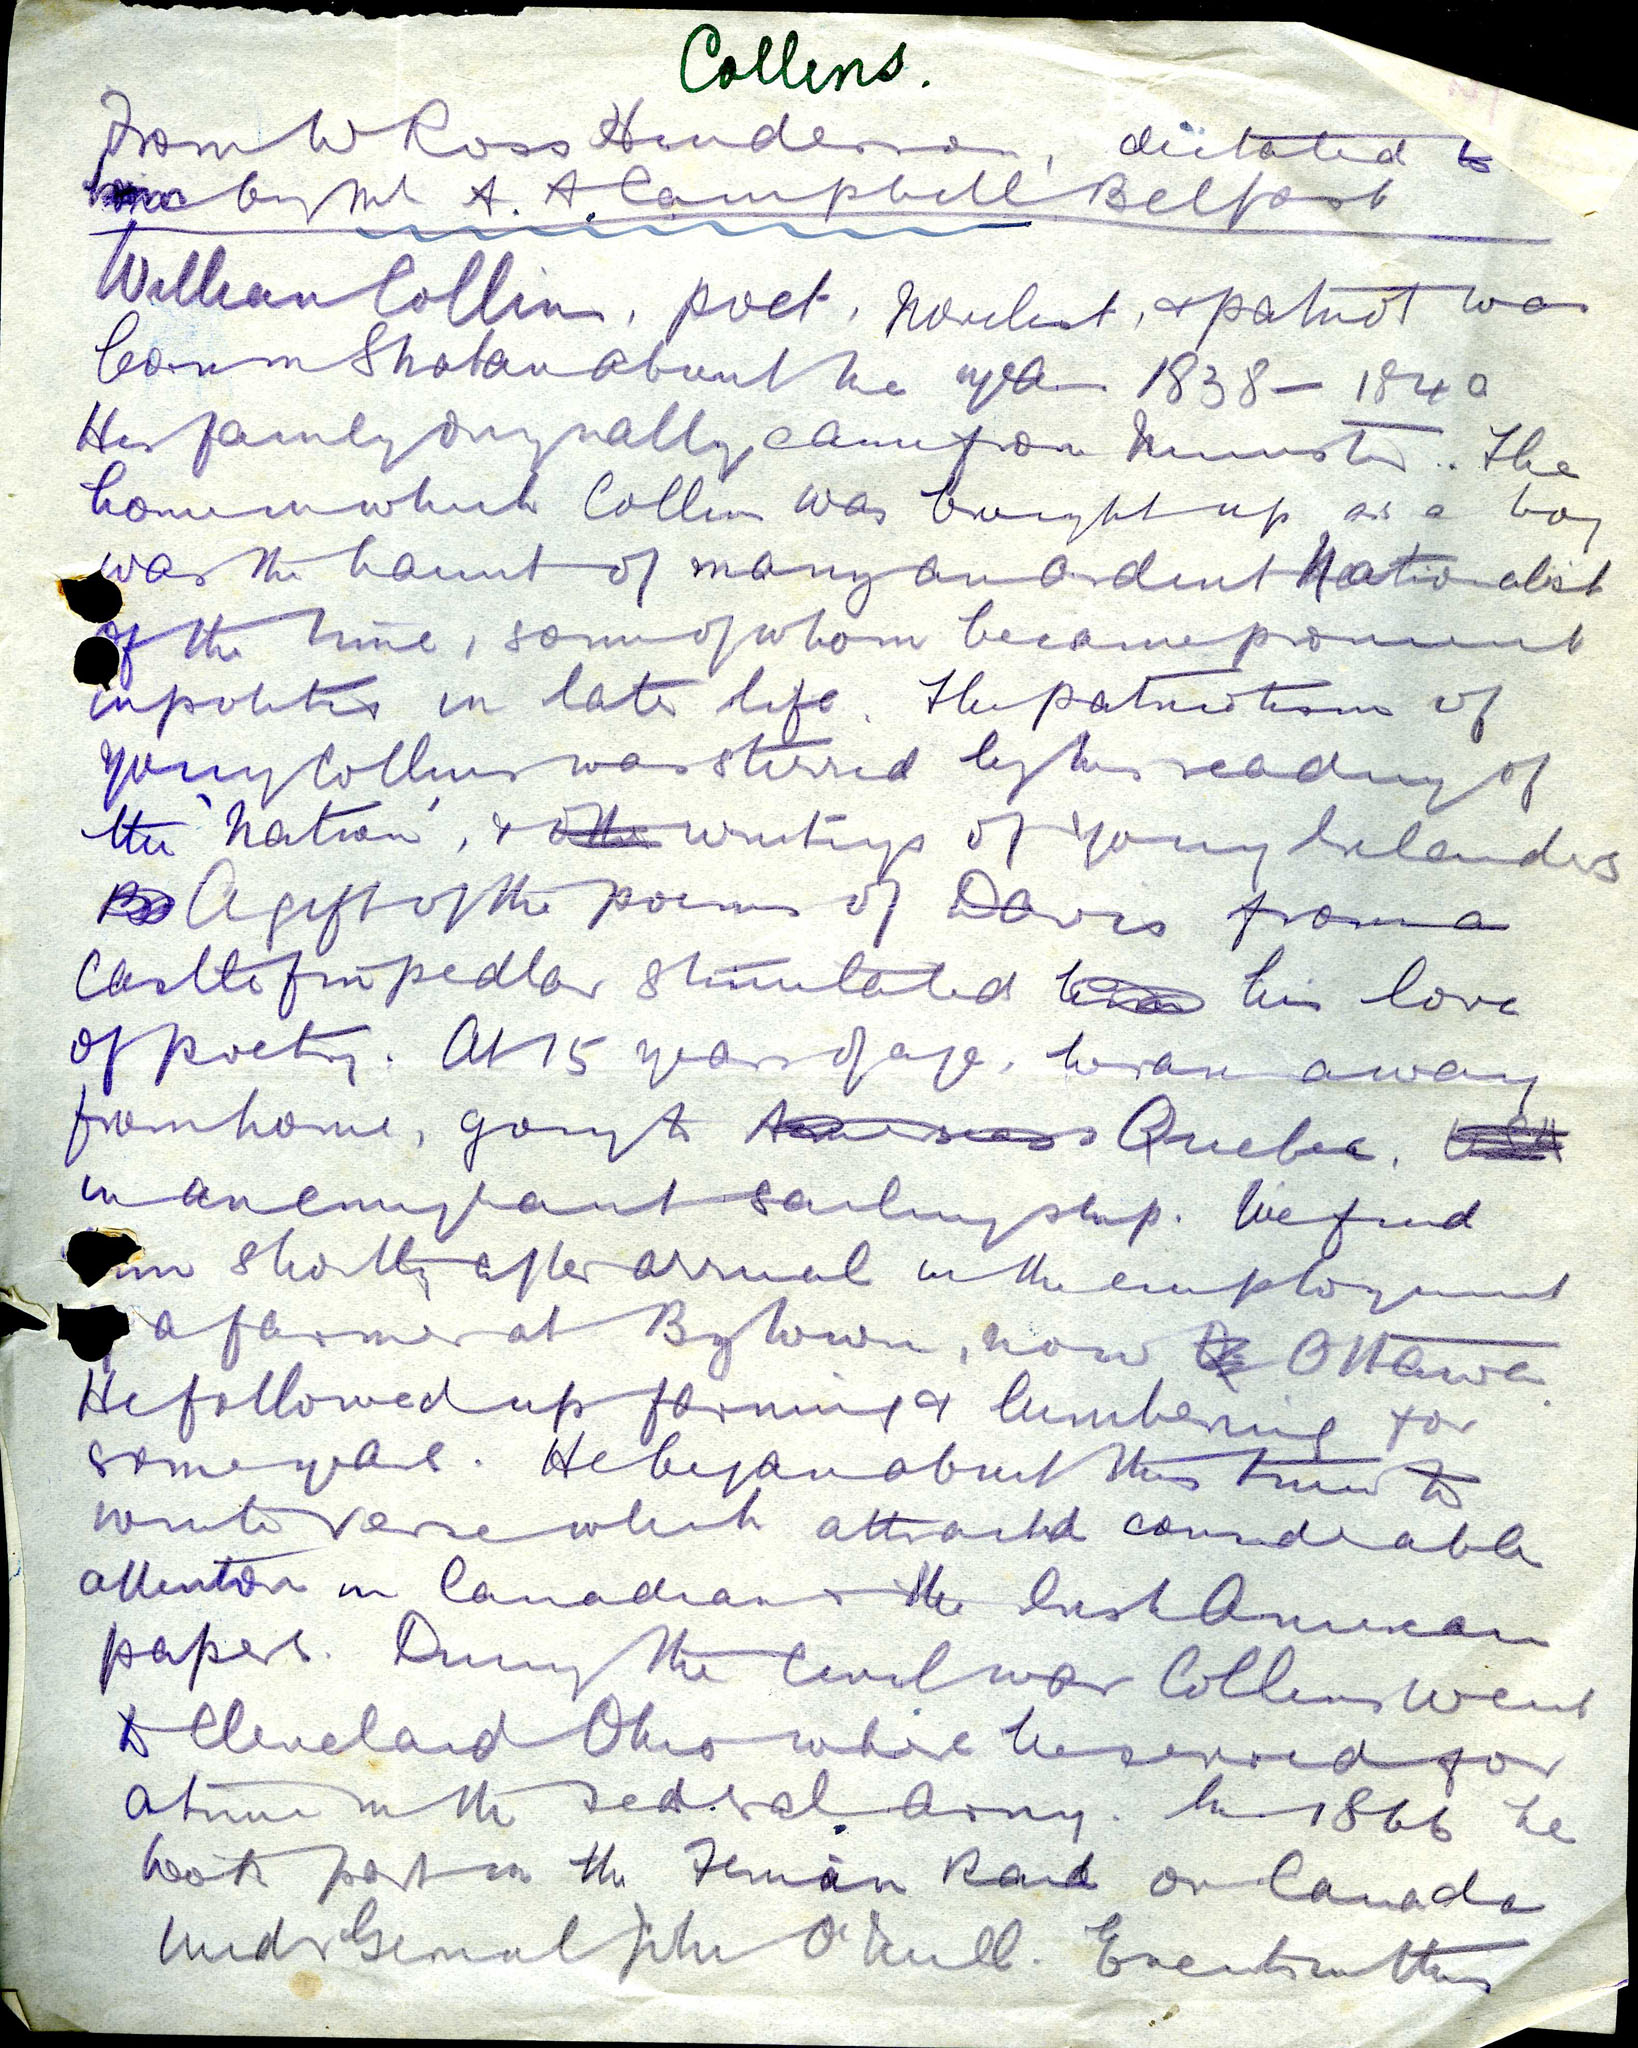 Collins.
From W Ross Henderson, dictated to
by Mr A. A. Campbell Belfast
William Collins, poet, novelist, & patriot was
born in Strabane about the year 1838 – 1840
His family originally came from Munster. The
home in which Collins was brought up as a boy
was the haunt of many an ardent Nationalist
of the time, some of whom became prominent
in politics in later life. The patriotism of
young Collins was stirred by his reading of
the 'Nation', & other writings of Young Irelanders
A gift of the poems of Davis from a
Castlefin pedlar stimulated him his love
of poetry. At 15 years of age, he ran away
from home, going to Quebec, USA
in an emigrant sailing ship. We find
him shortly after arrival in the employment
a farmer at Bytown, now Ottawa.
He followed up farming & lumbering for
some years. He began about this time to
write verse which attracted considerable
attention in Canadian & the Irish American
papers. During the Civil war Collins went
to Cleveland Ohio where he served for
a time in the Federal Army. In 1866 he
took part in the Fenian Raid on Canada
under General John O'Neill. Events in this